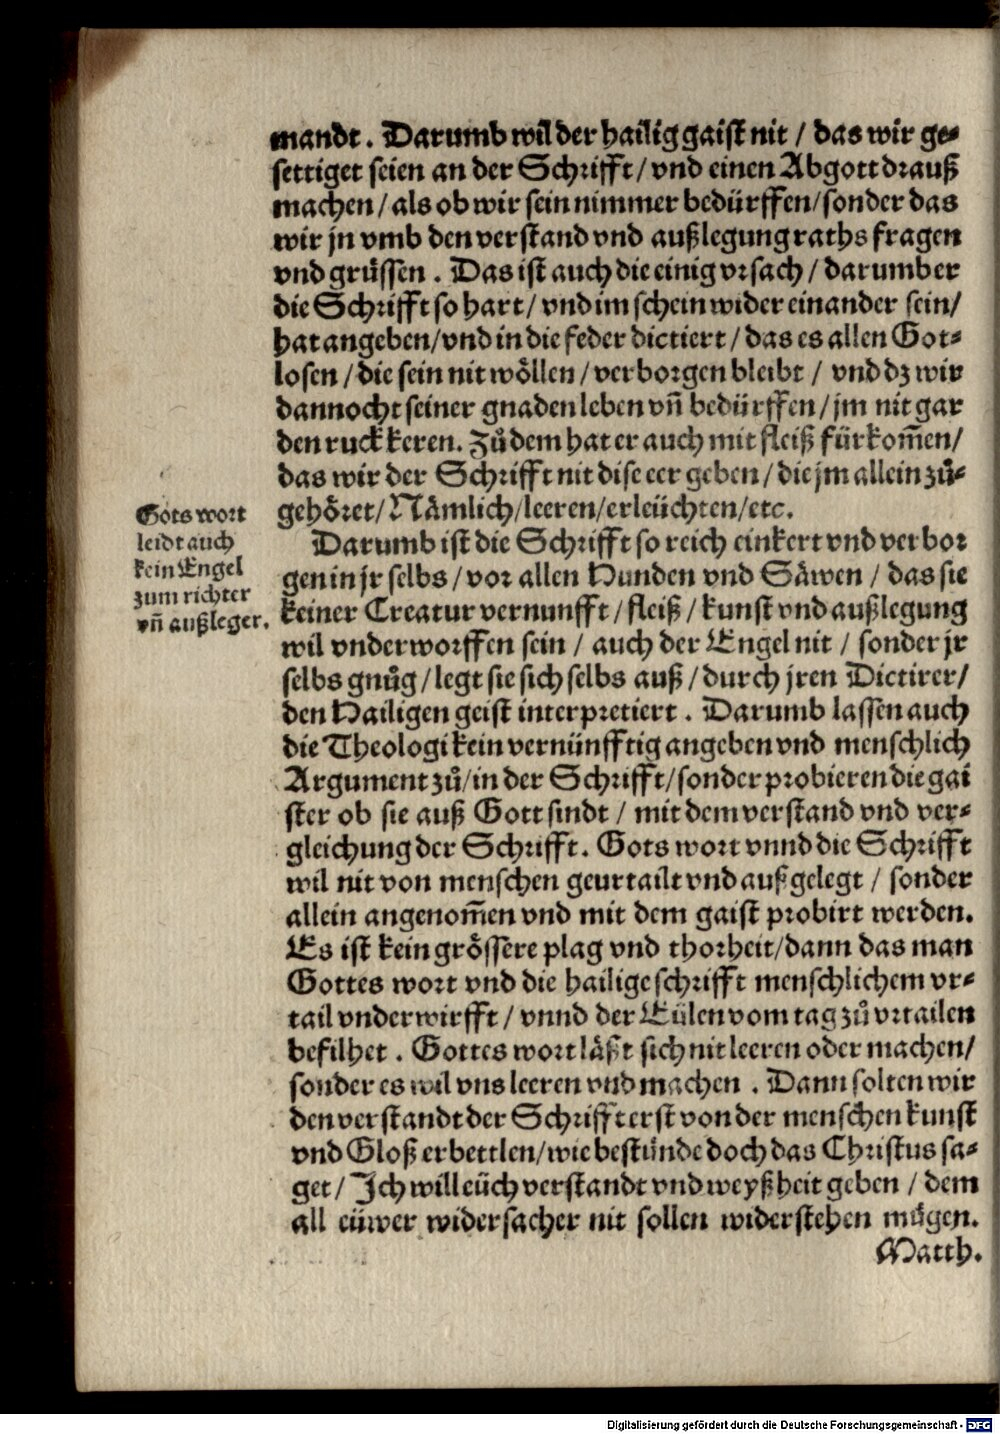 mandt. Darumb wil der hailig gaist nit / das wir ge-
settiget seien an der Schrifft / vnd einen Abgott drauß
machen / als ob wir sein nimmer bedürffen / sonder das
wir jn vmb den verstand vnd außlegung raths fragen
vnd grüssen. Das ist auch die einig vrsach / darumb er
die Schrifft so hart / vnd im schein wider einander sein /
hat angeben / vnd in die feder dictiert / das es allen Got-
losen / die sein nit wöllen / verborgen bleibt / vnd dz wir
dannocht seiner gnaden leben vn̄ bedürffen / jm nit gar
den ruck keren. Zů dem hat er auch mit fleiß fürkom̄en /
das wir der Schrifft nit dise eer geben / die jm allein zů-
gehöret / Nämlich / leeren / erleüchten / etc.
Gots wort
leidt auch
kein Engel
zum richter
vn̄ außleger.
Darumb ist die Schrifft so reich einkert vnd verbor
gen in jr selbs / vor allen Hunden vnd Säwen / das sie
keiner Creatur vernunfft / fleiß / kunst vnd außlegung
wil vnderworffen sein / auch der Engel nit / sonder jr
selbs gnůg / legt sie sich selbs auß / durch jren Dictirer /
den Hailigen geist interpretiert. Darumb lassen auch
die Theologi kein vernünfftig angeben vnd menschlich
Argument zů / in der Schrifft / sonder probieren die gai
ster ob sie auß Gott sindt / mit dem verstand vnd ver-
gleichung der Schrifft. Gots wort vnnd die Schrifft
wil nit von menschen geurtailt vnd außgelegt / sonder
allein angenom̄en vnd mit dem gaist probirt werden.
Es ist kein grössere plag vnd thorheit / dann das man
Gottes wort vnd die hailige schrifft menschlichem vr-
tail vnderwirfft / vnnd der Eülen vom tag zů vrtailen
befilhet. Gottes wort läßt sich nit leeren oder machen /
sonder es wil vns leeren vnd machen. Dann solten wir
den verstandt der Schrifft erst von der menschen kunst
vnd Gloß erbettlen / wie bestünde doch das Christus sa-
get / Ich will eüch verstandt vnd weyßheit geben / dem
all eüwer widersacher nit sollen widerstehen mügen.
Matth.
Digitalisierung gefördert durch die Deutsche Forschungsgemeinschaft - DFG